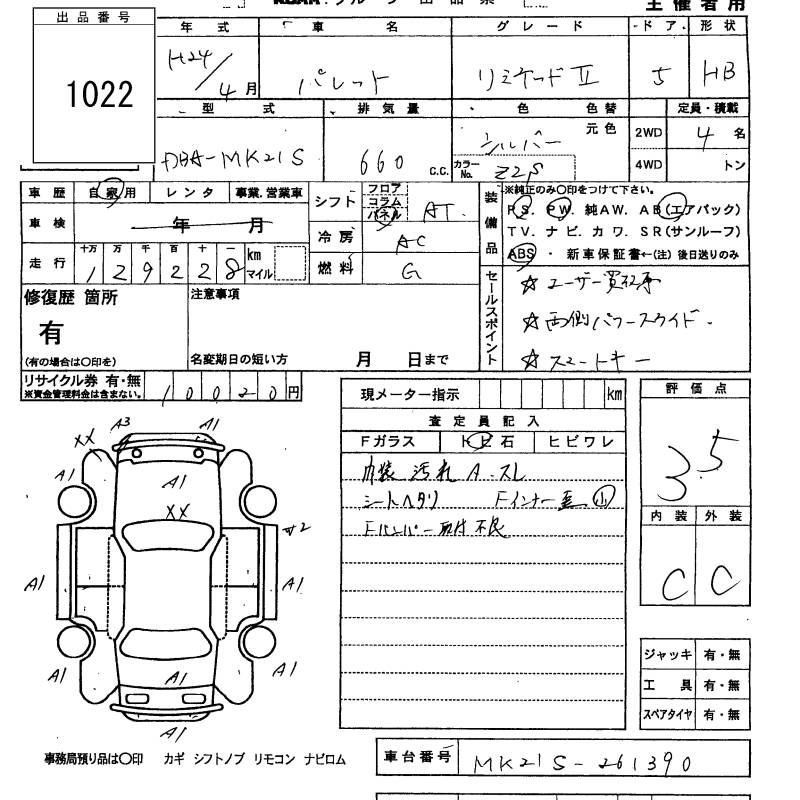 出品番号
1022
年式 車名 グレード ドア 形状
H24/4月 パレット リミテッドⅡ 5 HB
型式 排気量 色 色替 定員・積載
DBA-MK21S 660 c.c. シルバー 元色 2WD 4名
カラーNo. Z2S 4WD トン
車歴 自家用 レンタ 事業.営業車
シフト フロア コラム パネル AT
車検 年 月
冷房 AC
走行 十万 万 千 百 十 一 km マイル
129228
燃料 G
装備品 ※純正のみ〇印をつけて下さい。
PS. PW. 純AW. AB(エアバック)
TV. ナビ. カワ. SR(サンルーフ)
ABS ・新車保証書←(注)後日送りのみ
修復歴 箇所
有
(有の場合は〇印を)
注意事項
名変期日の短い方 月 日まで
セールスポイント
☆ユーザー買取車
☆両側パワースライド.
☆スマートキー
リサイクル券 有・無
※資金管理料金は含まない。
10020円
現メーター指示 km
査定員記入
Fガラス トビ石 ヒビワレ
内装 汚れ A.スレ
シートヘタリ Fインナー歪 小
Fバンパー取付不良
評価点
3.5
内装 外装
C C
A3 A1
XX
A1 A1 A1
XX
サ2
A1 A1
A1 A1 A1
A1
ジャッキ 有・無
工具 有・無
スペアタイヤ 有・無
事務局預り品は〇印 カギ シフトノブ リモコン ナビロム
車台番号 MK21S-261390